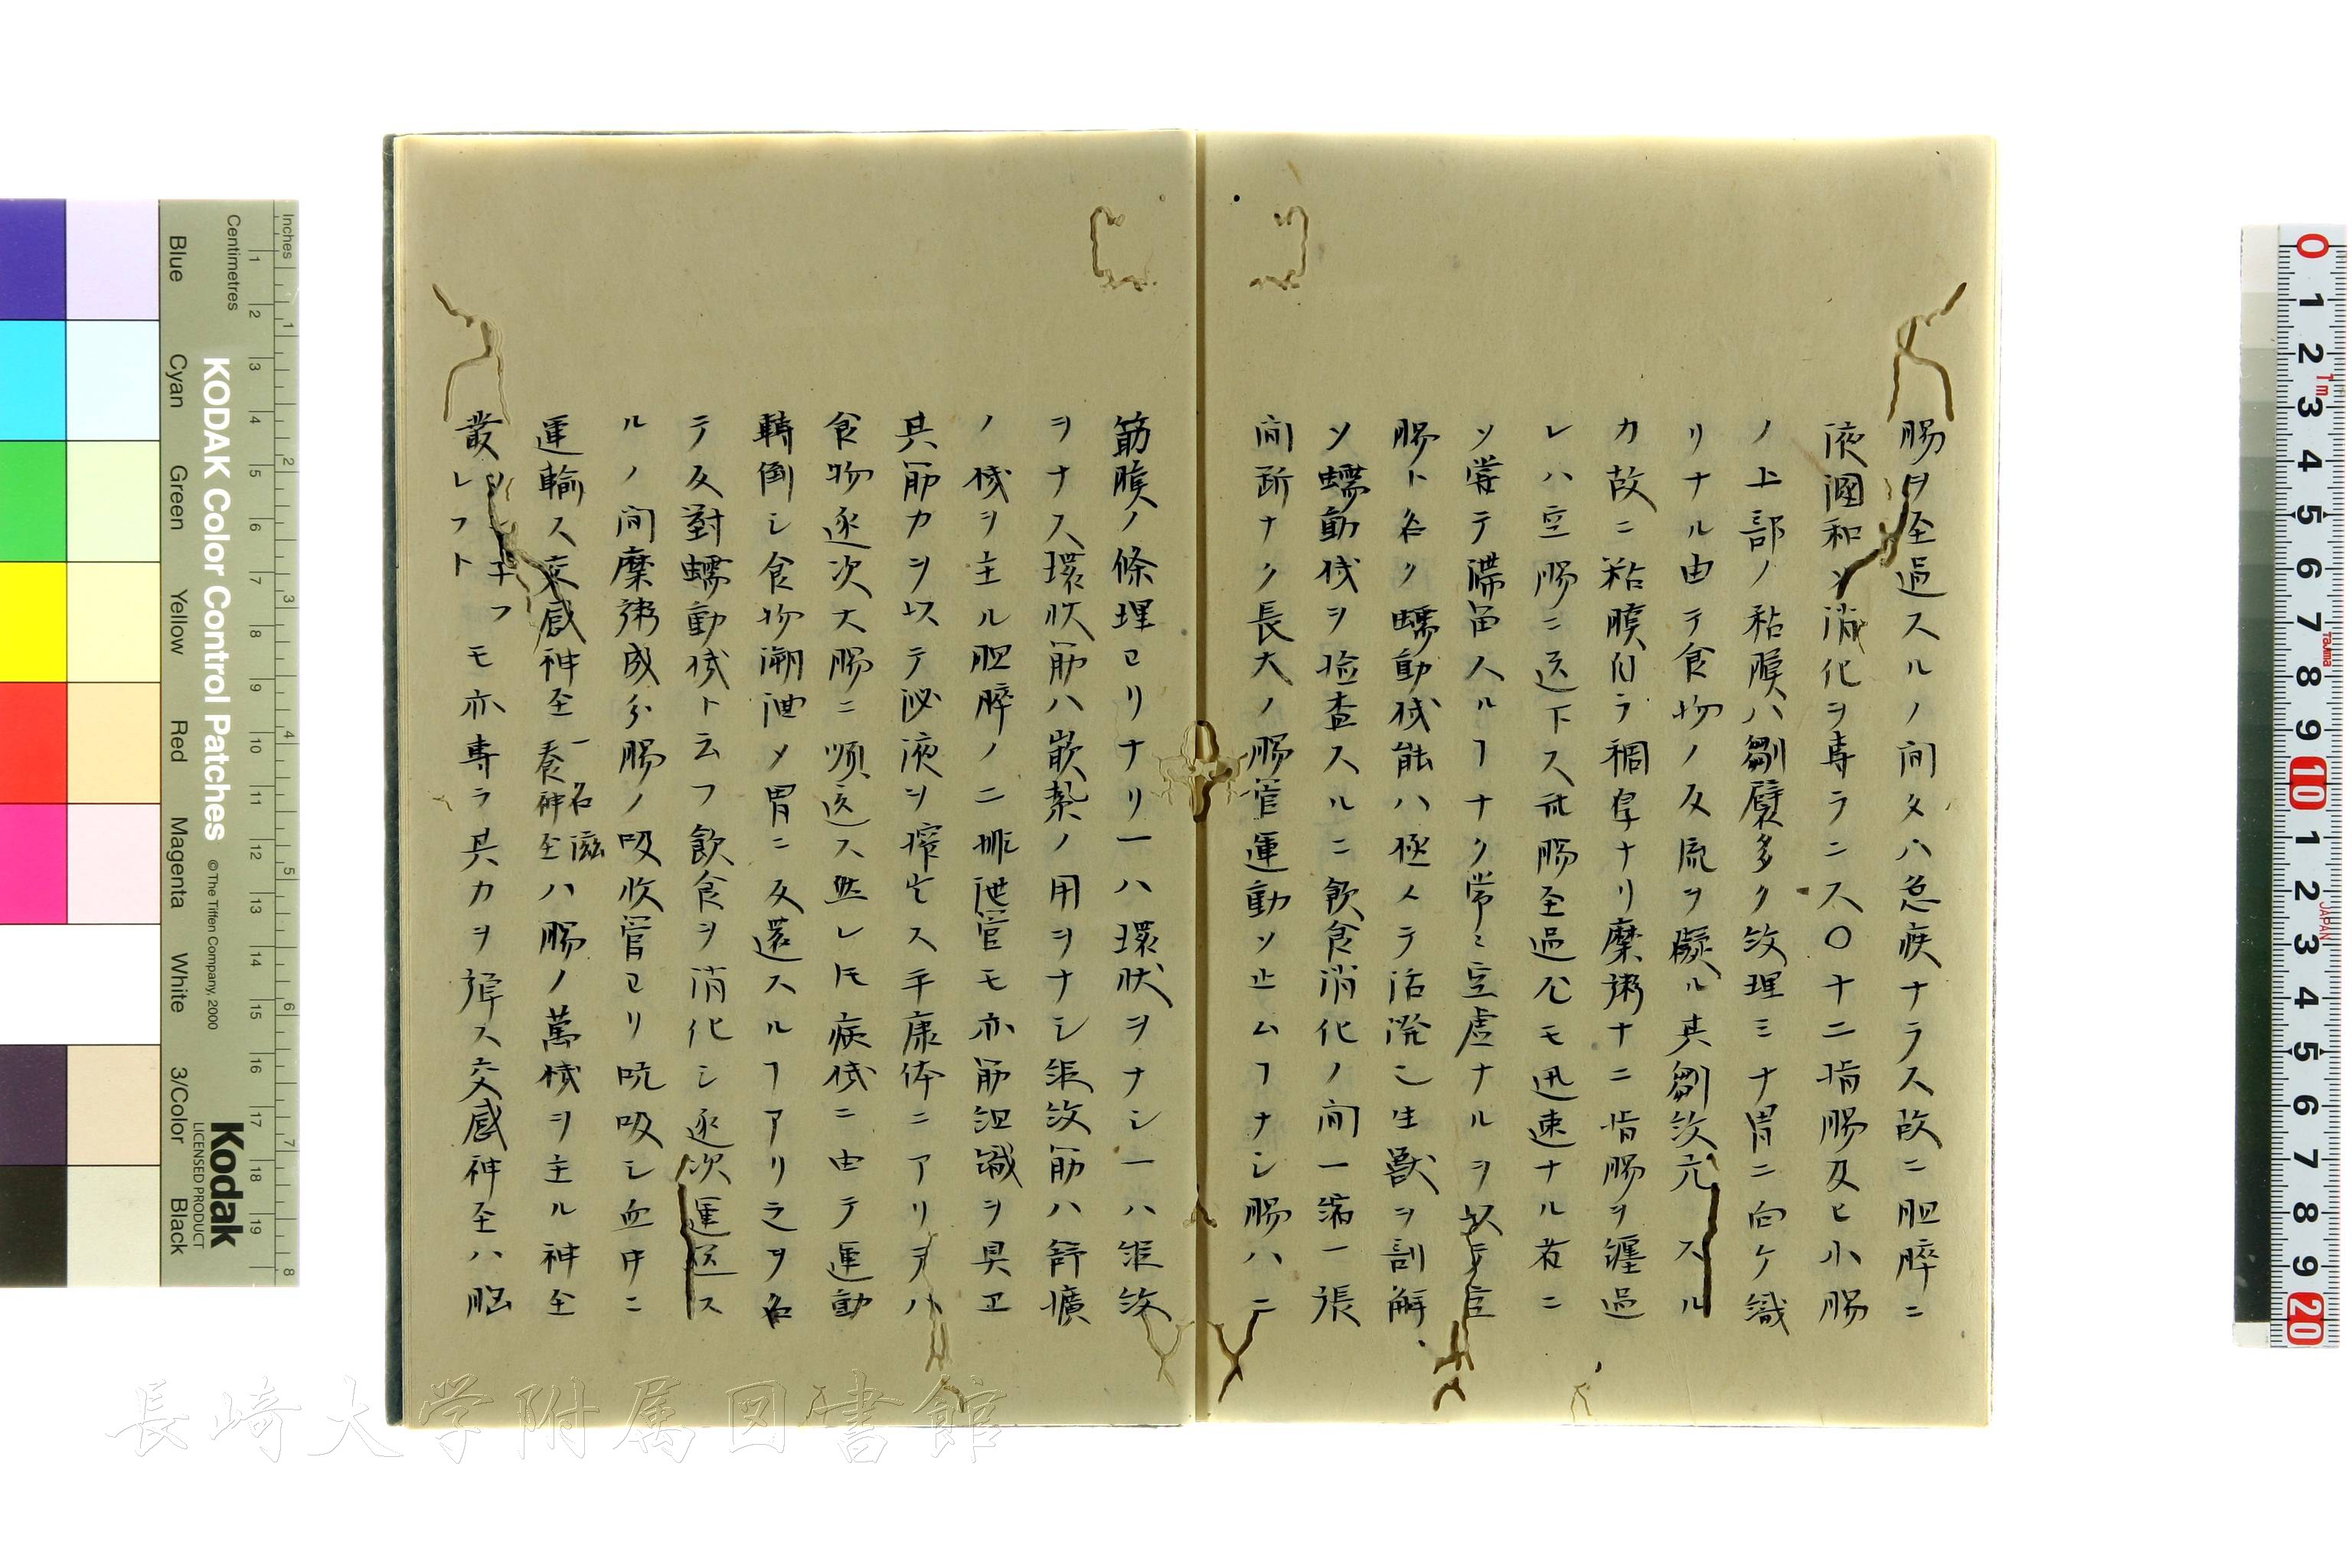 腸ヲ至過スルノ間タハ急疾ナラス故ニ胆膵ニ
液溷和シ消化ヲ専ラニス〇十二指腸及ヒ小腸
ノ上部ノ粘膜ハ皺襞多ク紋理ミナ胃ニ向ケ織
リナル由テ食物ノ反流ヲ礙ル其皺紋亢スル
カ故ニ粘膜自ラ稠厚ナリ糜粥十二指腸ヲ纏過
レハ空腸ニ送下ス此腸至過尤モ迅速ナル者ニ
ソ嘗テ滞留スルヿナク常ニ空虚ナルヲ以テ空
腸ト名ク蠕動機能ハ極メテ活溌ニ生獣ヲ剖解
ソ蠕動機ヲ検査スルニ飲食消化ノ間一縮一張
間断ナク長大ノ腸管運動ソ止ムヿナシ腸ハ二
筋膜ノ條理ヨリナリ一ハ環状ヲナシ一ハ縦紋
ヲナス環状筋ハ嵌紮ノ用ヲナシ縦紋筋ハ舒擴
ノ機ヲ主ル胆膵ノ二排泄管モ亦筋組織ヲ具ヱ
其筋力ヲ以テ泌液ヲ搾出ス平康体ニアリテハ
食物逐次大腸ニ順送ス然レ𪜈病機ニ由テ運動
轉倒シ食物溯泄メ胃ニ反還スルヿアリ之ヲ名
テ反對蠕動機ト云フ飲食ヲ消化シ逐次運送ス
ルノ間糜粥成分腸ノ吸收管ヨリ吮吸シ血中ニ
運輸ス交感神至一名滋養神至ハ腸ノ萬機ヲ主ル神至
叢レフト フモ亦専ラ其力ヲ輝ス交感神至ハ脳
Inches
Centimetres
KODAK Color Control Patches
© The Tiffen Company, 2000
Blue Cyan Green Yellow Red Magenta White 3/Color Black
Kodak
LICENSED PRODUCT
長崎大学附属図書館